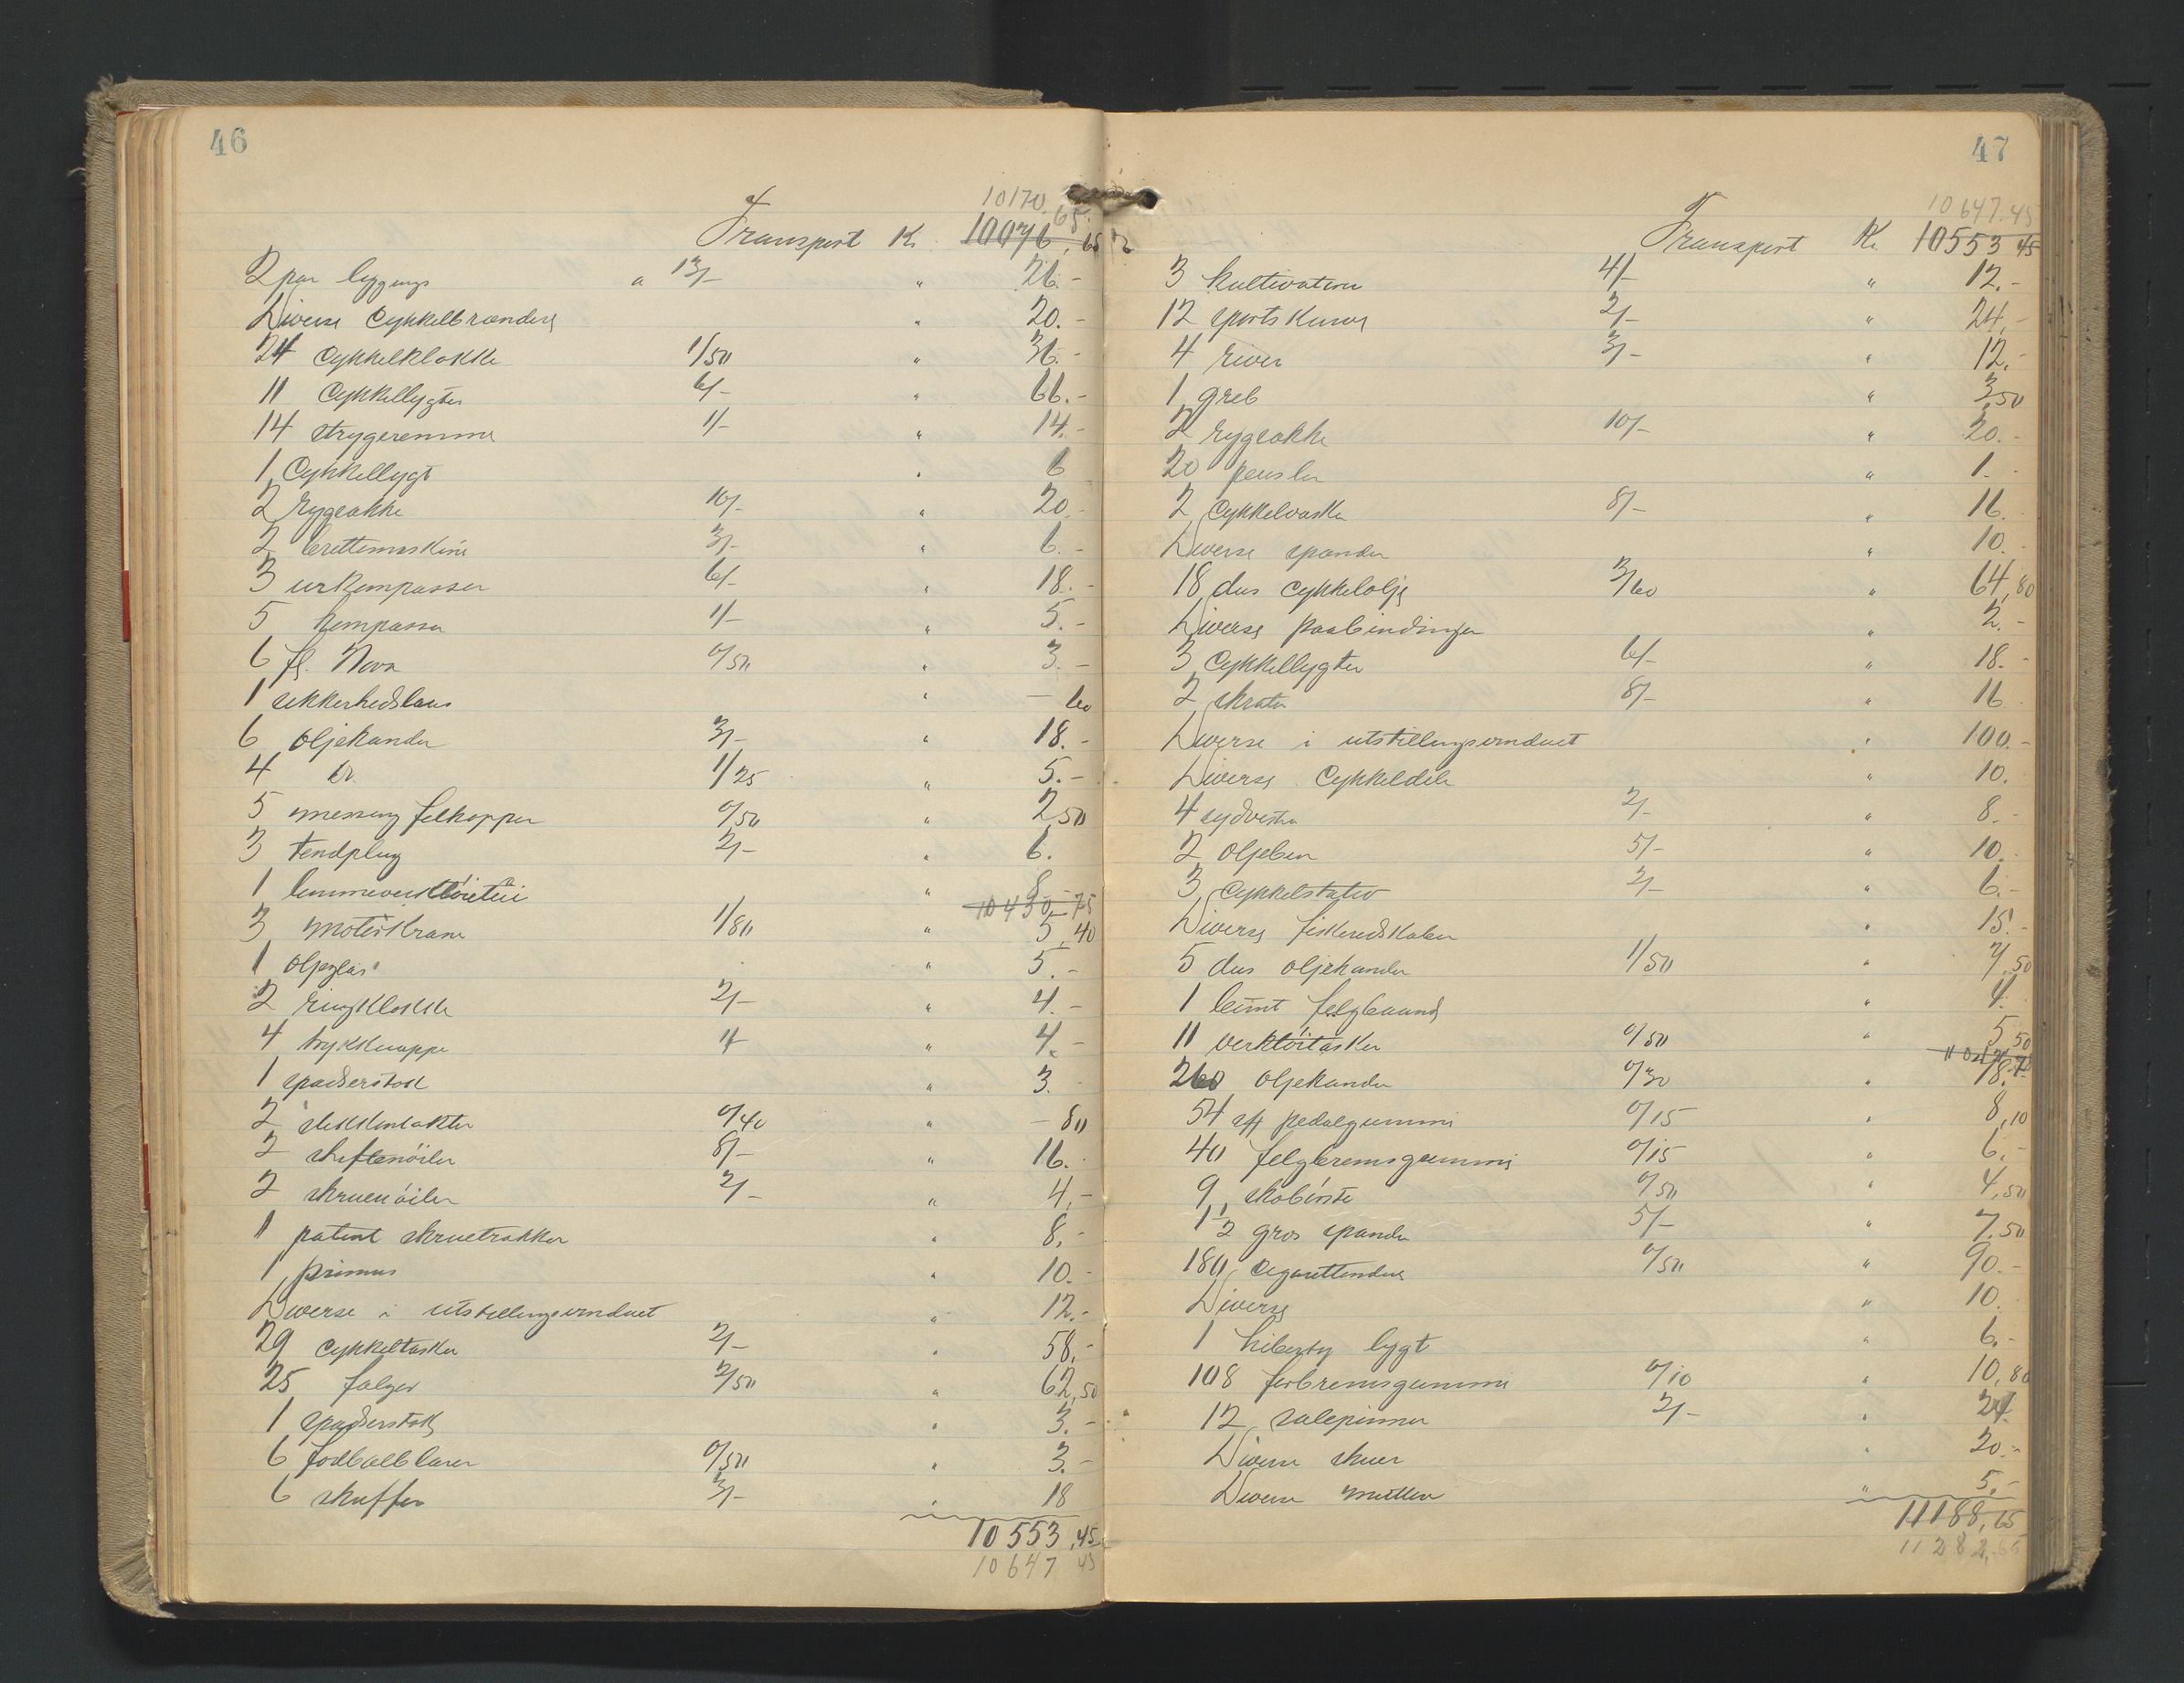 46
10170.65
Transport Kr. 10076,65
2 par leggings a 13/- " 26.-
Diverse Cykkelbrændere " 20.-
24 Cykkelklokke 1/50 " 36.-
11 Cykkellygter 6/- " 66.-
14 strygeremme 1/- " 14.-
1 Cykkellygt " 6
2 rygsække 10/- " 20.-
2 brettemaskine 3/- " 6.-
3 urkompasser 6/- " 18.-
5 kompasser 1/- " 5.-
6 fl. Nova 0/50 " 3.-
1 sikkerhedslaas " - 60
6 oljekander 3/- " 18.-
4 Do. 1/25 " 5.-
5 messing felkopper 0/50 " 2,50
3 tendplug 2/- " 6.
1 lommeverktöietui " 8.-
10430,75
3 motorkrane 1/80 " 5,40
1 oljeglas " 5.-
2 ringklokke 2/- " 4.-
4 trykknappe 1/- " 4.-
1 spadserstok " 3.-
2 stikkontakter 0/40 " - 80
2 skiftenöiler 8/- " 16.-
2 skruenöiler 2/- " 4,-
1 patent skruetrækker " 8,-
1 primus " 10.-
Diverse i utstillingsvinduet " 12.-
29 Cykkeltasker 2/- " 58,-
25 falger 2/50 " 62,50
1 spadserstok " 3.-
6 fodballblærer 0/50 " 3.-
6 skuffer 3/- " 18
10553,45
10647 45
47
10647.45
Transport Kr. 10553 45
3 kultivatorer 4/- " 12.-
12 sportskurve 2/- " 24,-
4 river 3/- " 12,-
1 greb " 3,50
2 rygsække 10/- " 20.-
20 pensler " 1.-
2 Cykkelvasker 8/- " 16.
Diverse spænder " 10.-
18 dus Cykkelolje 3/60 " 64,80
Diverse paabindinger " 2.-
3 Cykkellygter 6/- " 18.-
2 skrater 8/- " 16
Diverse i utstillingsvinduet " 100.-
Diverse Cykkeldele " 10.
4 sydvester 2/- " 8.-
2 oljeben 5/- " 10.-
3 Cykkelstativ 2/- " 6.-
Diverse fiskeredskaber " 15.-
5 dus oljekander 1/50 " 7,50
1 bunt felgbaand " 4.
11 verktöitasker 0/50 " 5,50
260 oljekander 0/30 " 78.-
54 st pedalgummi 0/15 " 8,10
40 felgbremsgummi 0/15 " 6.-
9 skobörste 0/50 " 4,50
1 1/2 gros spænder 5/- " 7,50
180 Cigarettendere 0/50 " 90.-
Diverse " 10.
1 Liberty lygt " 6.-
108 forbremsgummi 0/10 " 10,80
12 salepinner 2/- " 24
Diverse skuer " 20.-
Diverse mutter " 5,-
11188,65
11282,65